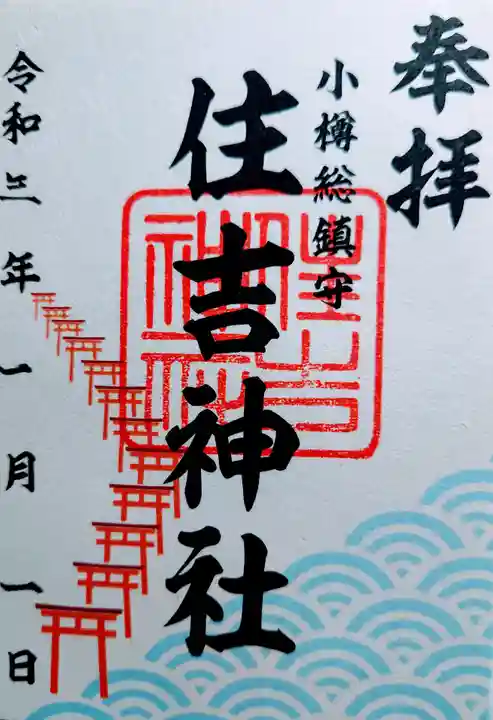 奉拝
小樽総鎮守
住吉神社
住吉神社
令和三年一月一日